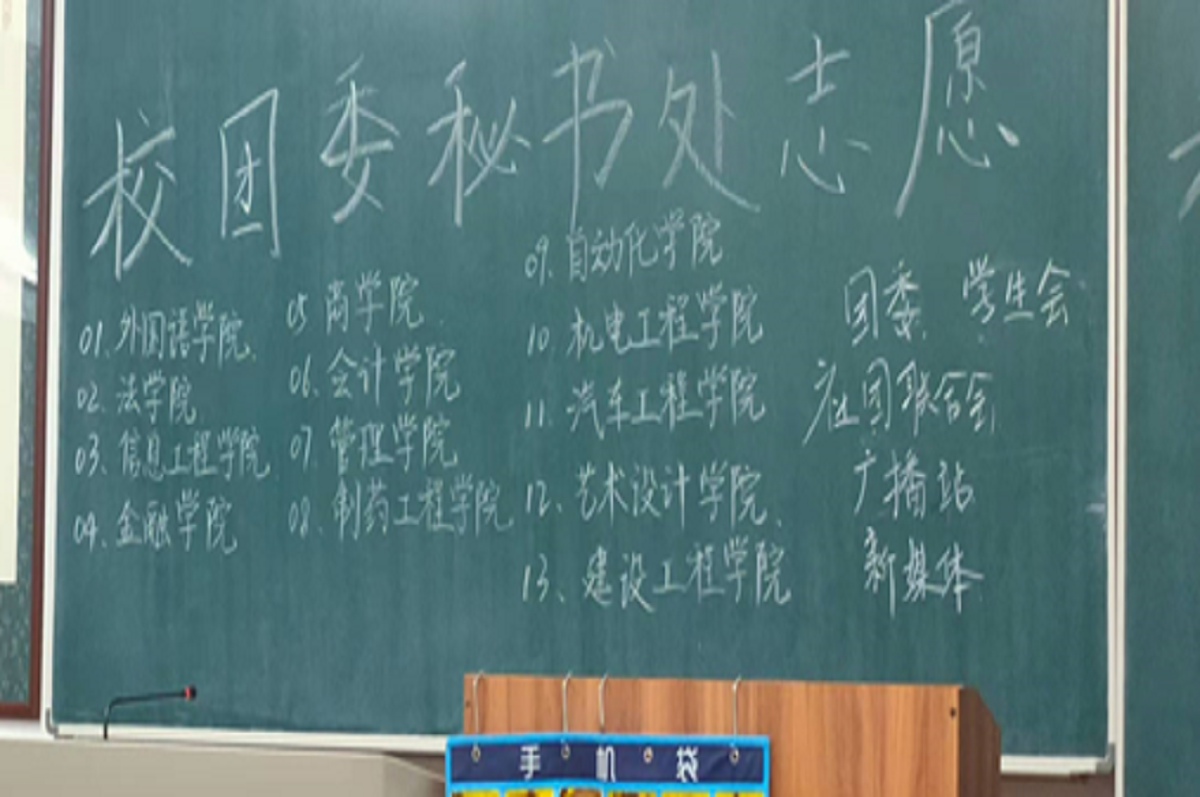 校团委秘书处志愿
01.外国语学院
02.法学院
03.信息工程学院
04.金融学院
05 商学院
06.会计学院
07 管理学院
08.制药工程学院
09.自动化学院
10 机电工程学院
11.汽车工程学院
12.艺术设计学院
13、建设工程学院
团委 学生会
社团联合会
广播站
新媒体
手机袋